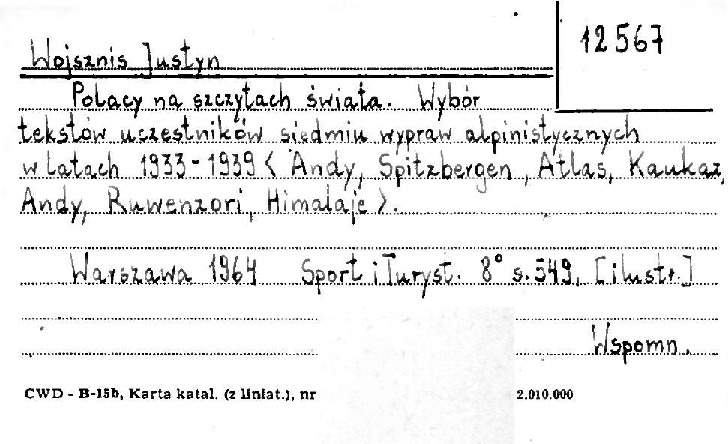 12567
Wojsznis Justyn
Polacy na szczytach świata. Wybór
tekstów uczestników siedmiu wypraw alpinistycznych
w latach 1933-1939 < Andy, Spitzbergen, Atlas, Kaukaz,
Andy, Ruwenzori, Himalaje >.
Warszawa 1964 Sport i Turyst. 8° s. 549, [ilustr.]
Wspomn.
CWD - B-15b, Karta katal. (z liniat.), nr 2.010.000